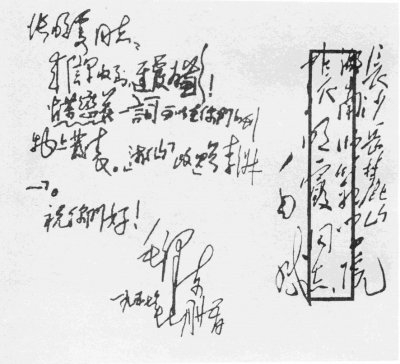 张明霞同志：
来信早收到，迟复为歉！
蝶恋花一詞可以在你們的刊
物上發表。《游仙》改《贈李淑
一》。
祝你們好！
毛澤東
一九五七年
十一月廿五日
長沙岳麓山
湖南师范学院
张明霞同志